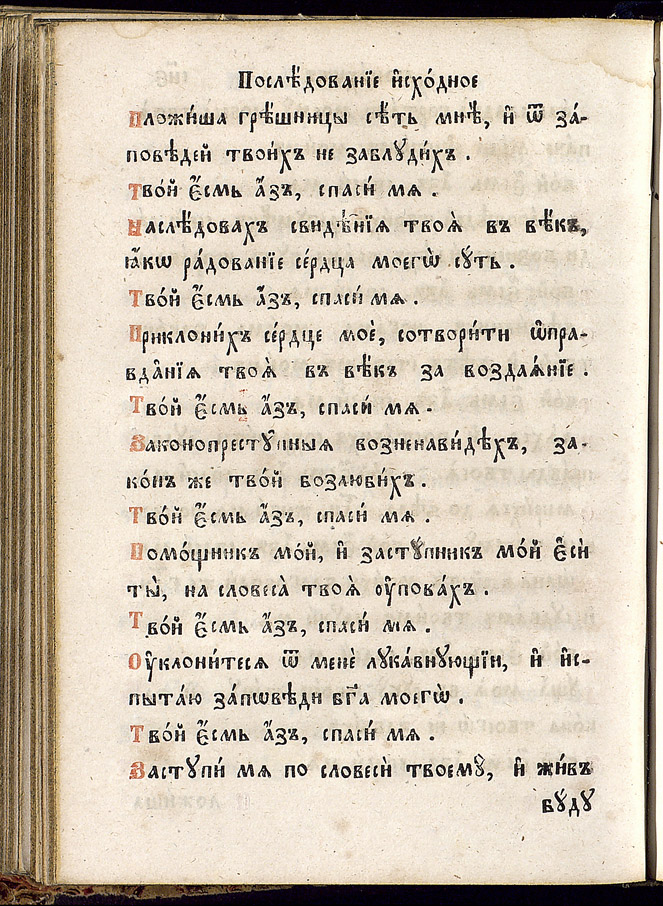 Послѣ́дованїе и҆схо́дное
Пложи́ша грѣ̑шницы сѣ́ть мнѣ̀, и҆ ѿ за́-
повѣдей твои́хъ не заблуди́хъ .
Тво́й є҆́смь а҆́зъ, спаси́ мѧ .
Наслѣ́довахъ свидѣ̑нїѧ твоѧ̀ въ вѣ́къ,
ꙗ҆́кѡ ра́дованїе се́рдца моегѡ̀ сꙋ́ть .
Тво́й є҆́смь а҆́зъ, спаси́ мѧ .
Приклони́хъ се́рдце моѐ, сотвори́ти ѡ҆пра-
вда̑нїѧ твоѧ̀ въ вѣ́къ за воздаѧ́нїе .
Тво́й є҆́смь а҆́зъ, спаси́ мѧ .
Законопрестꙋ́пныѧ возненави́дѣхъ, за-
ко́нъ же тво́й возлюби́хъ .
Тво́й є҆́смь а҆́зъ, спаси́ мѧ .
Помо́щникъ мо́й, и҆ застꙋ́пникъ мо́й є҆сѝ
ты̀, на словеса̀ твоѧ̀ ᲂу҆пова́хъ .
Тво́й є҆́смь а҆́зъ, спаси́ мѧ .
Оу҆клони́тесѧ ѿ менѐ лꙋка́внꙋющїи, и҆ и҆с-
пыта́ю за́пѡвѣди бг҃а моегѡ̀ .
Тво́й є҆́смь а҆́зъ, спаси́ мѧ .
Застꙋпи́ мѧ по словесѝ твоемꙋ̀, и҆ жи́въ
бꙋ́дꙋ